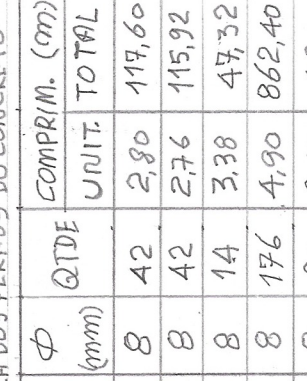 Φ QTDE COMPRIM. (m)
(mm) UNIT. TOTAL
8 42 2,80 117,60
8 42 2,76 115,92
8 14 3,38 47,32
8 176 4,90 862,40